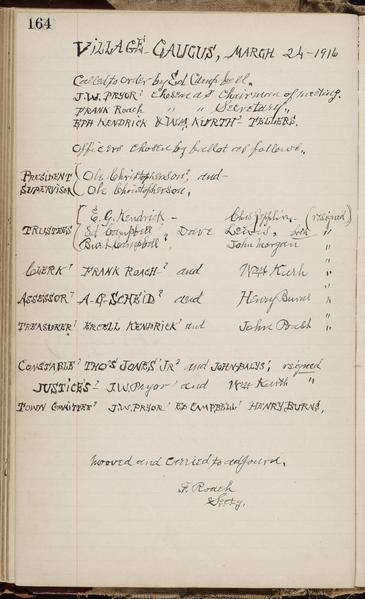 164
VILLAGE CAUCUS, MARCH 24-1916
Called to order by Ed Campbell.
J.W. PRYOR Chosen as Chairman of meeting.
FRANK Roach " " Secretary "
EPH KENDRICK & WM. KURTH - TELLERS.
Officers chosen by ballot as follows.
PRESIDENT Ole Christopherson, and -
SUPERVISOR Ole Christopherson,
E. G. Kendrick - Chas Popplin - (resigned)
TRUSTEES Ed Campbell, Dave Lewis, "
Burt Campbell, John Morgan "
CLERK FRANK ROACH - and Wm Kurth "
ASSESSOR A-G-SCHEID and Henry Burns "
TREASURER ERCELL KENDRICK and John Roach "
CONSTABLE THOS JONES JR and JOHN DALYS, resigned
JUSTICES - J.W. Pryor and Wm Kurth "
TOWN COMMITTEE J.W. PRYOR ED CAMPBELL HENRY BURNS,
Mooved and carried to adjourn.
F. Roach
Secty.